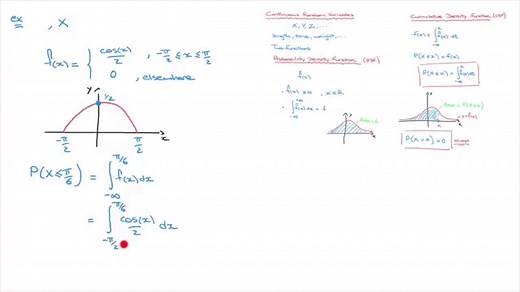 ex , X
f(x) = { cos(x)/2 , -π/2 ≤ x ≤ π/2
0 , elsewhere
y
1/2
-π/2 π/2 x
P(X ≤ π/6) = ∫_{-∞}^{π/6} f(x) dx
= ∫_{-π/2}^{π/6} cos(x)/2 dx
Continuous Random Variables
X, Y, Z, ...
length, time, weight, ...
Two functions
Probability Density Function (PDF)
f(x)
· f(x) ≥ 0 , x ∈ R
· ∫_{-∞}^{+∞} f(x) dx = 1
y
Area = 1
x
Cumulative Density Function (CDF)
P(X ≤ x)
y
x
P(X = x) = 0